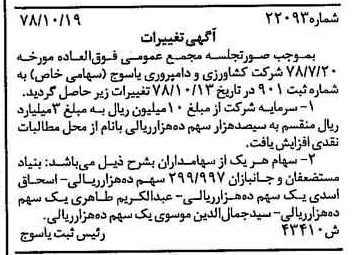 شماره ۲۲۰۹۳
۷۸/۱۰/۱۹
آگهی تغییرات
بموجب صورتجلسه مجمع عمومی فوق‌العاده مورخه
۷۸/۷/۲۰ شرکت کشاورزی و دامپروری یاسوج (سهامی خاص) به
شماره ثبت ۹۰۱ در تاریخ ۷۸/۱۰/۱۳ تغییرات زیر حاصل گردید.
۱- سرمایه شرکت از مبلغ ۱۰ میلیون ریال به مبلغ ۳ میلیارد
ریال منقسم به سیصدهزار سهم ده‌هزارریالی بانام از محل مطالبات
نقدی افزایش یافت.
۲- سهام هر یک از سهامداران بشرح ذیل می‌باشد: بنیاد
مستضعفان و جانبازان ۲۹۹/۹۹۷ سهم ده‌هزارریالی- اسحاق
اسدی یک سهم ده‌هزارریالی- عبدالکریم طاهری یک سهم
ده‌هزارریالی- سیدجمال‌الدین موسوی یک سهم ده‌هزارریالی.
ش ۴۳۴۱۰ رئیس ثبت یاسوج